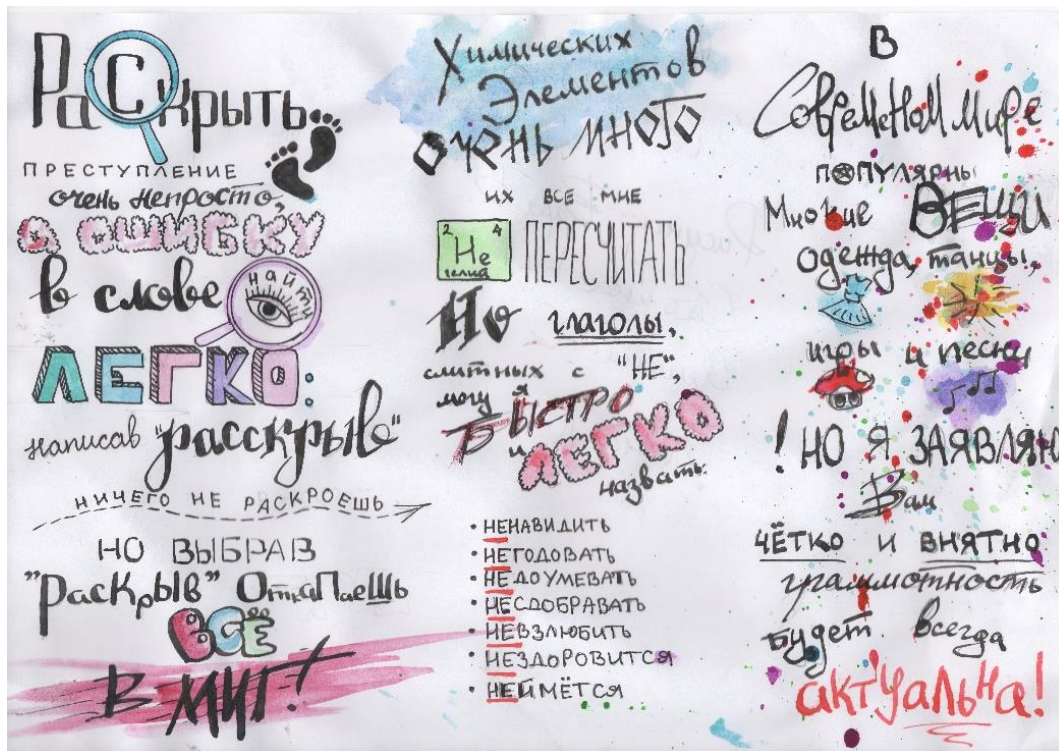 РаСкрыть
ПРЕСТУПЛЕНИЕ
очень непросто,
а ошибку
в слове
найти
ЛЕГКО:
написав "расскрыв"
НИЧЕГО НЕ РАСКРОЕШЬ
НО ВЫБРАВ
"РаскРыв" ОткаПаеШь
ВСЁ
В МИГ!
Химических
Элементов
очень много
их все мне
2 4
He
гелий
ПЕРЕСЧИТАТЬ
Но глаголы,
слитных с "НЕ",
могу я
БЫСТРО
и ЛЕГКО
назвать:
• НЕНАВИДИТЬ
• НЕГОДОВАТЬ
• НЕДОУМЕВАТЬ
• НЕСДОБРАВАТЬ
• НЕВЗЛЮБИТЬ
• НЕЗДОРОВИТСЯ
• НЕЙМЁТСЯ
В
Современом мире
ПОПУЛЯРНЫ
Многие ВЕЩИ
одежда, танцы,
игры и песни
! НО Я ЗАЯВЛЯЮ
Вам
ЧЁТКО И ВНЯТНО
грамотность
будет всегда
актуальна!